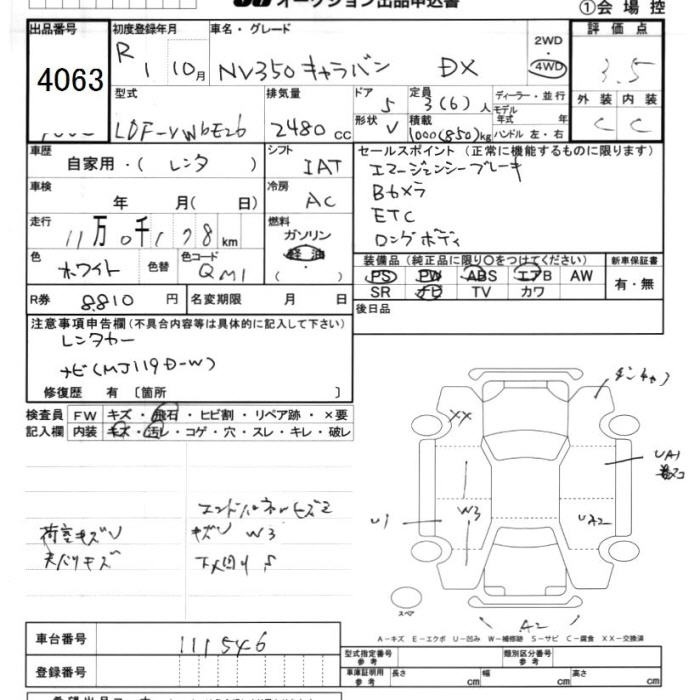 オークション出品申込書
①会場控
出品番号
4063
初度登録年月
R 1 10月
車名・グレード
NV350 キャラバン DX
2WD
4WD
評価点
3.5
外装 内装
C C
型式
LDF-VW6E26
排気量
2480 cc
ドア
5
形状
V
定員
3(6)人
積載
1000(850)kg
ディーラー・並行
モデル年式 年
ハンドル 左・右
車歴
自家用・( レンタ )
シフト
IAT
車検
年 月( 日)
冷房
AC
走行
11万0千178km
燃料
ガソリン
( )
色
ホワイト
色替
色コード
QM1
R券 8,810 円
名変期限 月 日
セールスポイント (正常に機能するものに限ります)
エマージェンシーブレーキ
Bカメラ
ETC
ロングボディ
装備品(純正品に限り○をつけてください)
PS PW ABS エアB AW
SR ナビ TV カワ
新車保証書
有・無
後日品
注意事項申告欄(不具合内容等は具体的に記入して下さい)
レンタカー
ナビ(MJ119D-W)
修復歴 有 〔箇所 〕
検査員 FW キズ・飛石・ヒビ割・リペア跡・×要
記入欄 内装 キズ・汚レ・コゲ・穴・スレ・キレ・破レ
エンドパネルキズZ
荷室キズU
キズU W3
天バリキズ
下メ回り S
XX
UA1
U1
W3
UA2
A2
スペア
A-キズ E-エクボ U-凹み W-補修跡 S-サビ C-腐食 XX-交換済
車台番号 111546
登録番号
型式指定番号 参考
類別区分番号 参考
車庫証明用 参考 長さ cm 幅 cm 高さ cm